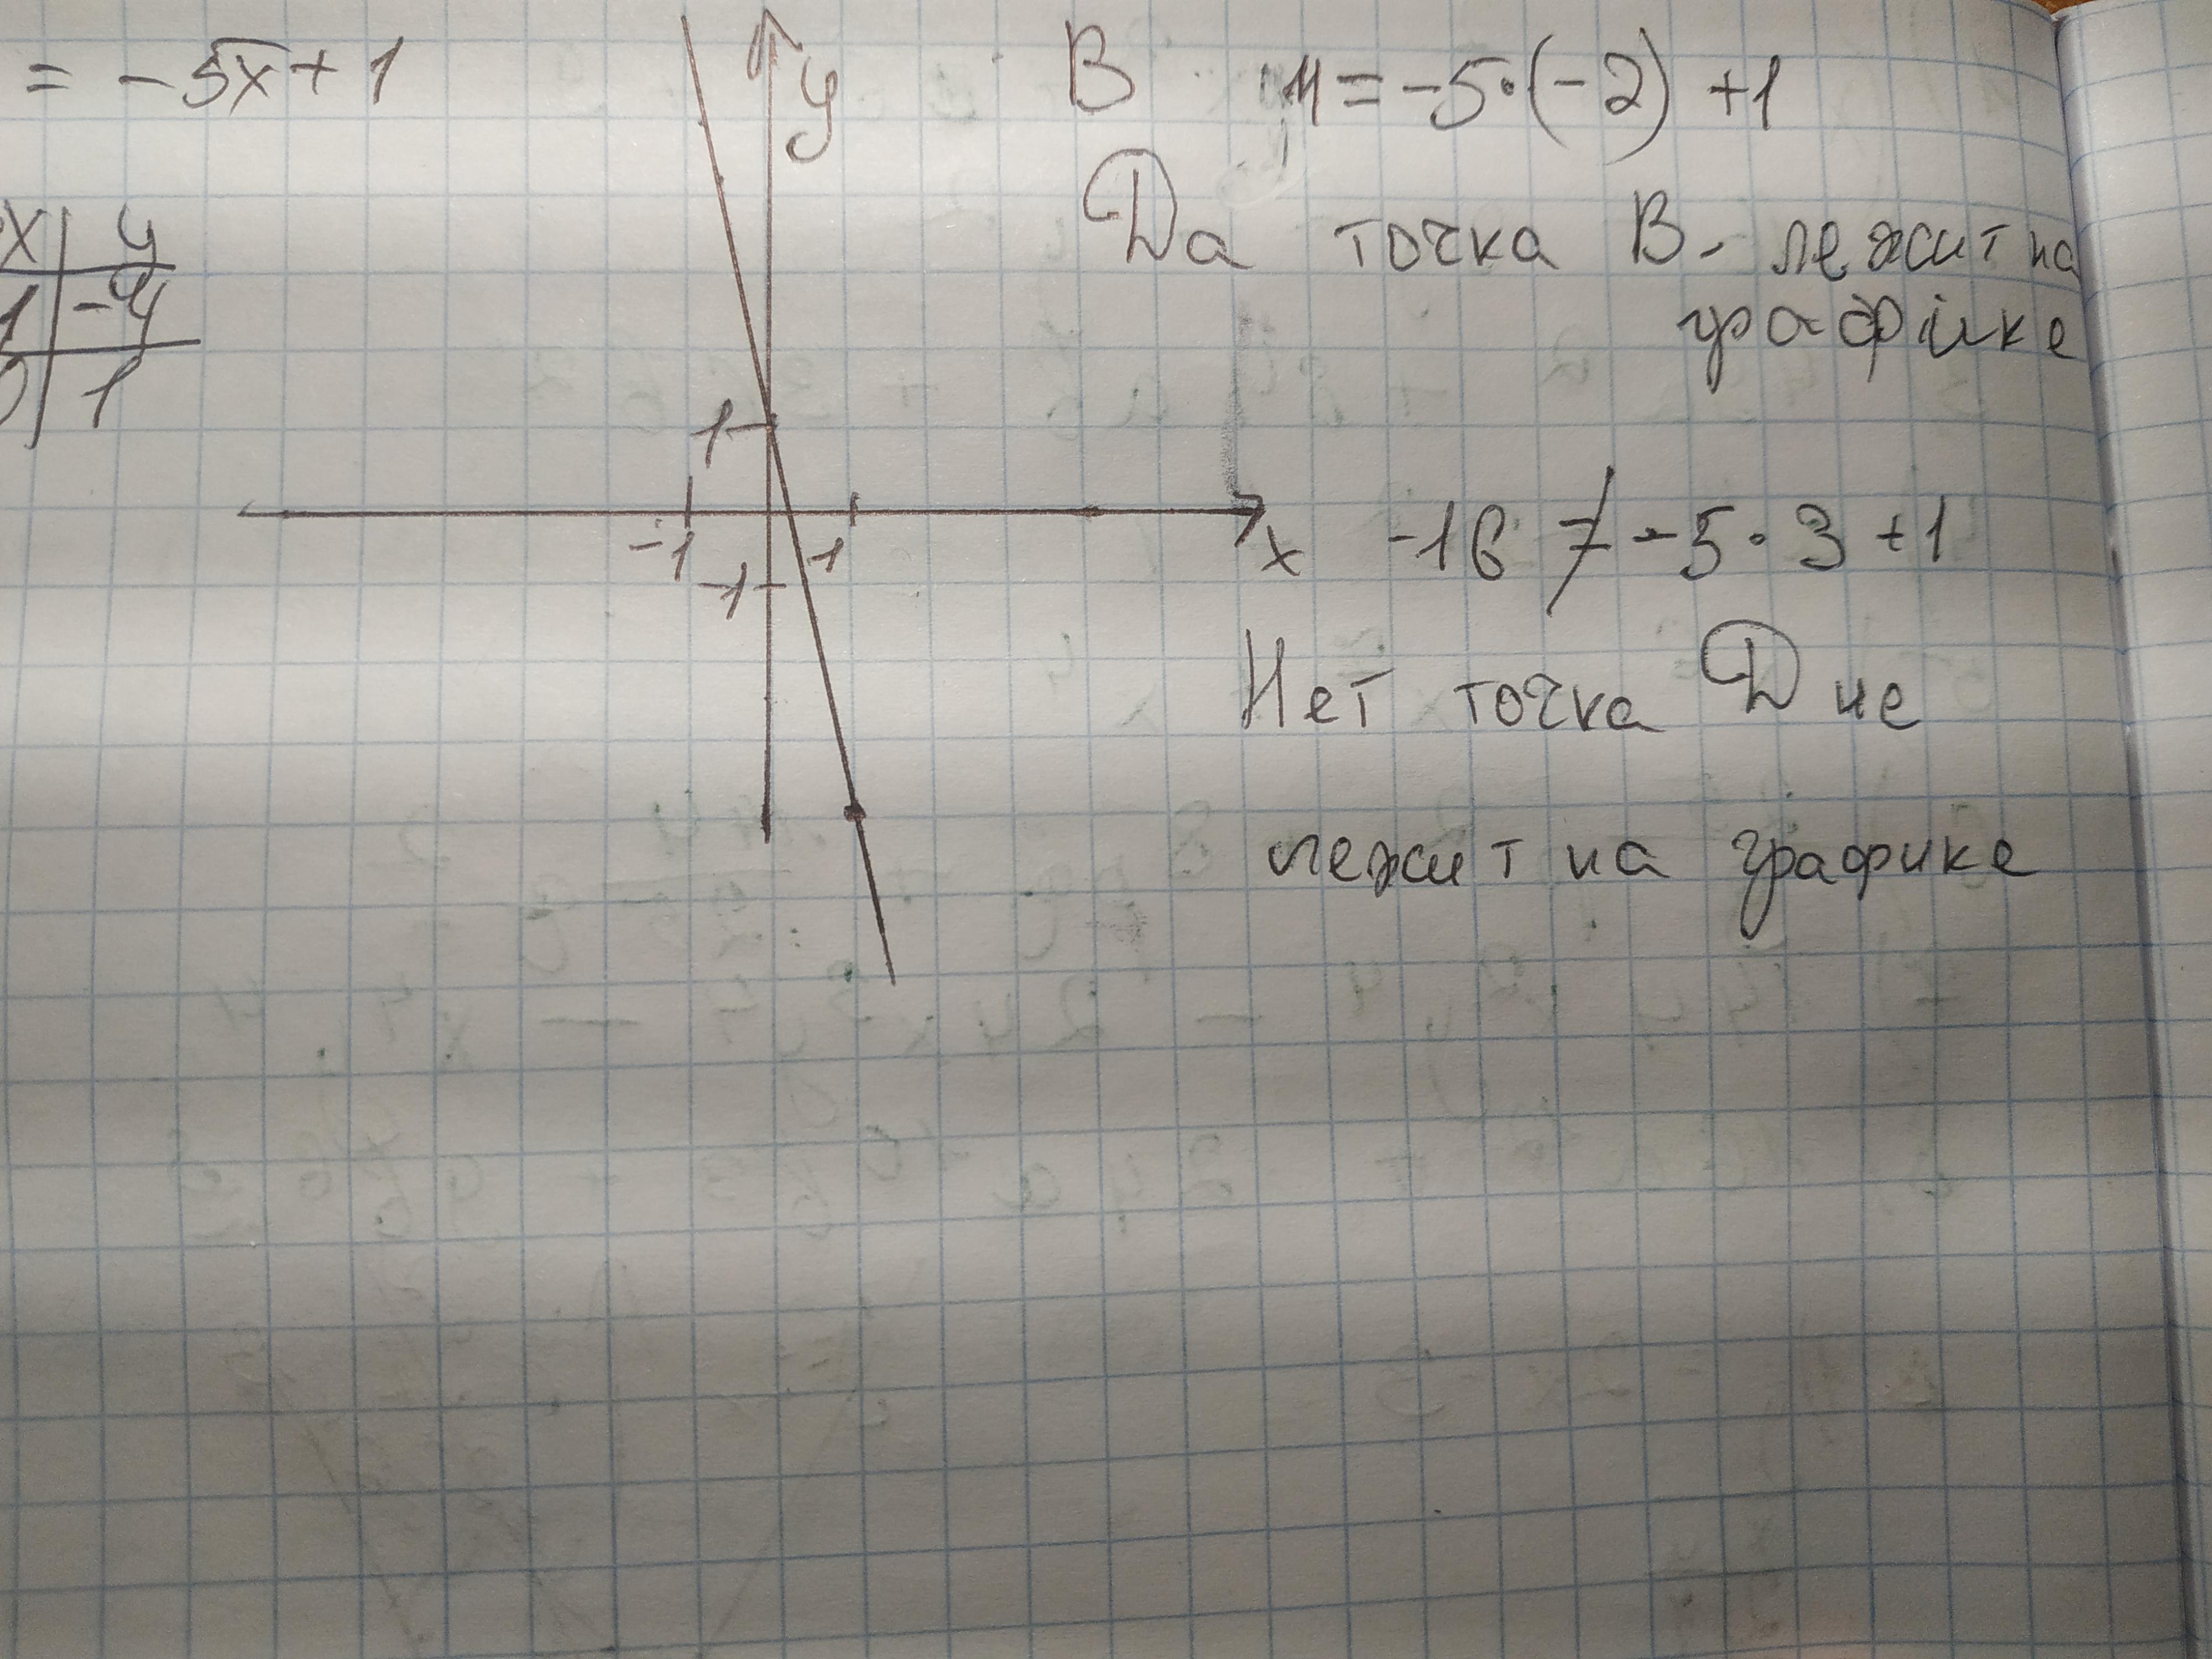 = -5x+1
y
B 11=-5·(-2)+1
Да точка B. лежит на
графике
x | y
1 | -4
0 | 1
1
-1
1
-1
x
-16 ≠ -5·3+1
Нет точка D не
лежит на графике